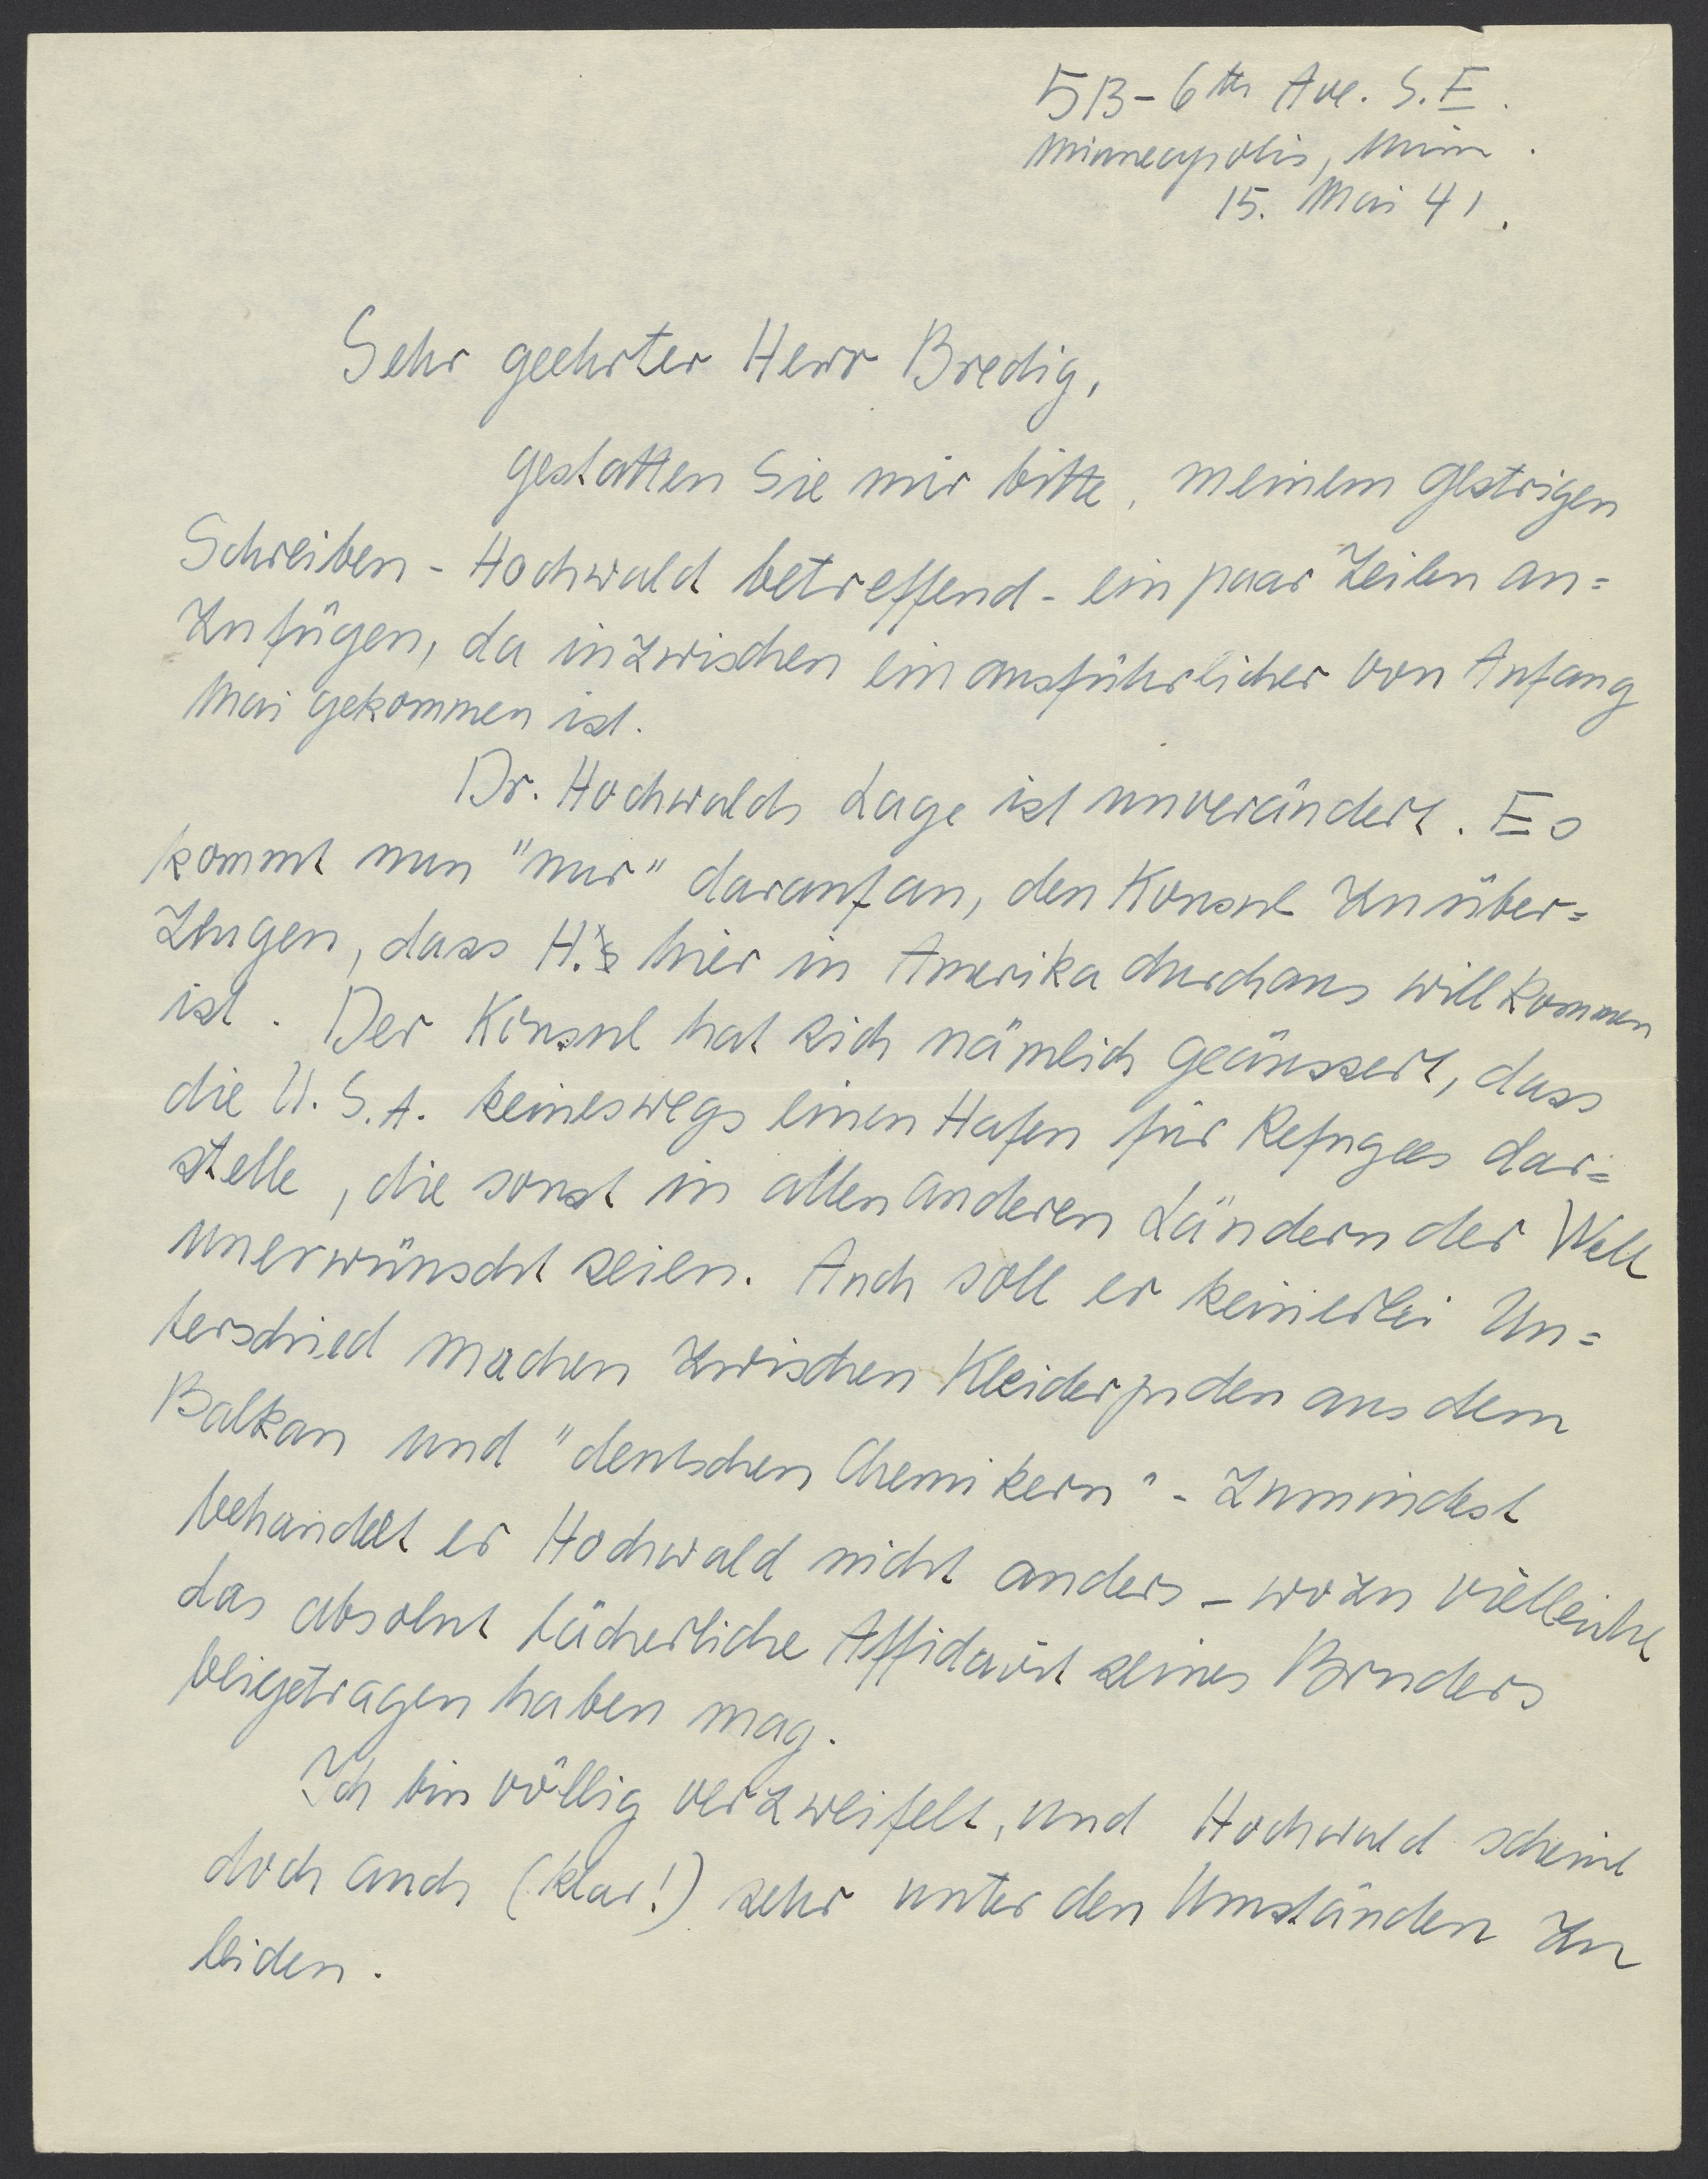 513 - 6th Ave. S.E.
Minneapolis, Minn.
15. Mai 41.
Sehr geehrter Herr Bredig,
gestatten Sie mir bitte, meinem gestrigen
Schreiben - Hochwald betreffend - ein paar Zeilen an=
zufügen, da inzwischen ein ausführlicher von Anfang
Mai gekommen ist.
Dr. Hochwalds Lage ist unverändert. Es
kommt nun "nur" darauf an, den Konsul zu über=
zeugen, dass H. hier in Amerika durchaus willkommen
ist. Der Konsul hat sich nämlich geäussert, dass
die U.S.A. keineswegs einen Hafen für Refugees dar=
stelle, die sonst in allen anderen Ländern der Welt
unerwünscht seien. Auch soll er keinerlei Un=
terschied machen zwischen Kleiderjuden aus dem
Balkan und "deutschen Chemikern" - Zumindest
behandelt er Hochwald nicht anders - wozu vielleicht
das absolut lächerliche Affidavit seines Bruders
beigetragen haben mag.
Ich bin völlig verzweifelt, und Hochwald scheint
doch auch (klar!) sehr unter den Umständen zu
leiden.